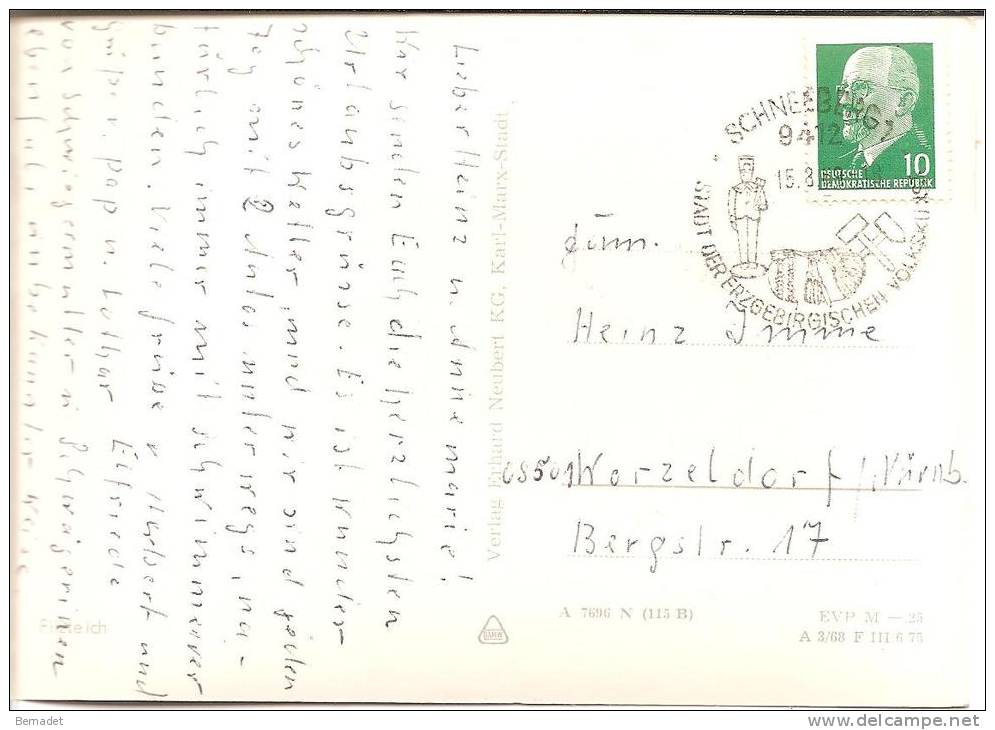 Lieber Heinz u. Annemarie!
Wir senden Euch die herzlichsten
Urlaubsgrüsse. Es ist wunder-
schönes Wetter und wir sind jeden
Tag mit 2 Autos unterwegs, na-
türlich immer mit Schwimmver
bunden. Viele Grüsse v. Hubert und
Elfriede
Grüße v. Papa u. Lothar
von Schwiegermutter u. Schwägerinnen
ebenfalls unbekannter Weise
Filzteich
Verlag Erhard Neubert KG, Karl-Marx-Stadt
SCHNEEBERG 1
9412
15.8.
STADT DER ERZGEBIRGISCHEN VOLKSKUNST
10
DEUTSCHE
DEMOKRATISCHE REPUBLIK
Fam.
Heinz Imme
8501 Worzeldorf / Nürnb.
Bergstr. 17
A 7696 N (115 B)
EVP M —.25
A 3/68 F III 6 75
Bernadet
www.delcampe.net